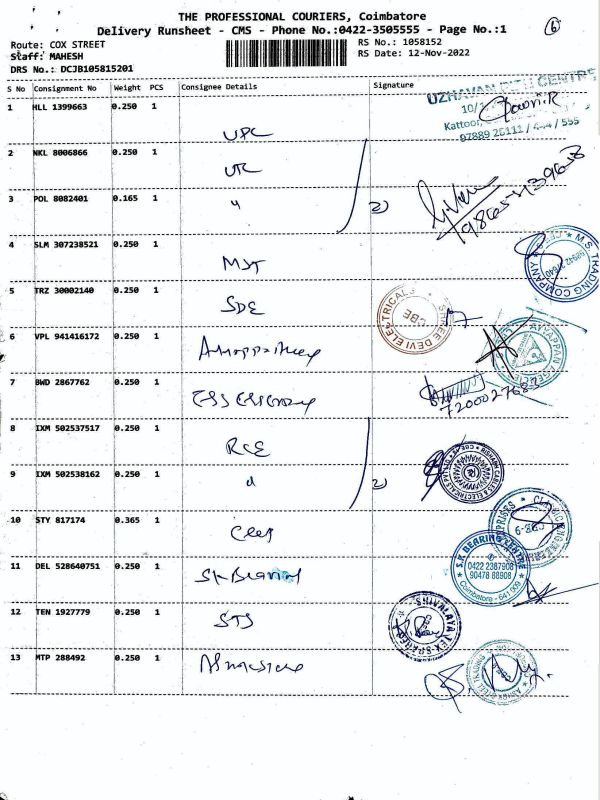 THE PROFESSIONAL COURIERS, Coimbatore
Delivery Runsheet - CMS - Phone No.:0422-3505555 - Page No.:1
6
Route: COX STREET
RS No.: 1058152
Staff: MAHESH
RS Date: 12-Nov-2022
DRS No.: DCJB105815201
S No Consignment No Weight PCS Consignee Details Signature
1 HLL 1399663 0.250 1 UPC
UZHAVAN CENTRE
10/
Kattoor,
97889 25111 / 444 / 555
2 NKL 8006866 0.250 1 UTC
3 POL 8082401 0.165 1 " 2)
4 SLM 307238521 0.250 1 MST
M.S. TRADING COMPANY
5 TRZ 30002140 0.250 1 SDE
SHREE DEVI ELECTRICALS CBE
6 VPL 941416172 0.250 1
AYYAPPAN AGENCY
7 BWD 2867762 0.250 1
8 IXM 502537517 0.250 1 RCE
9 IXM 502538162 0.250 1 " 2)
RISHABH CABLES & ELECTRICALS
10 STY 817174 0.365 1
CBE-9
11 DEL 528640751 0.250 1 SK Bearing
S.K BEARING CENTRE
0422 2387908
90478 88908
Coimbatore - 641 009
12 TEN 1927779 0.250 1 STS
SHIVALAYA TEX SPARES
13 MTP 288492 0.250 1